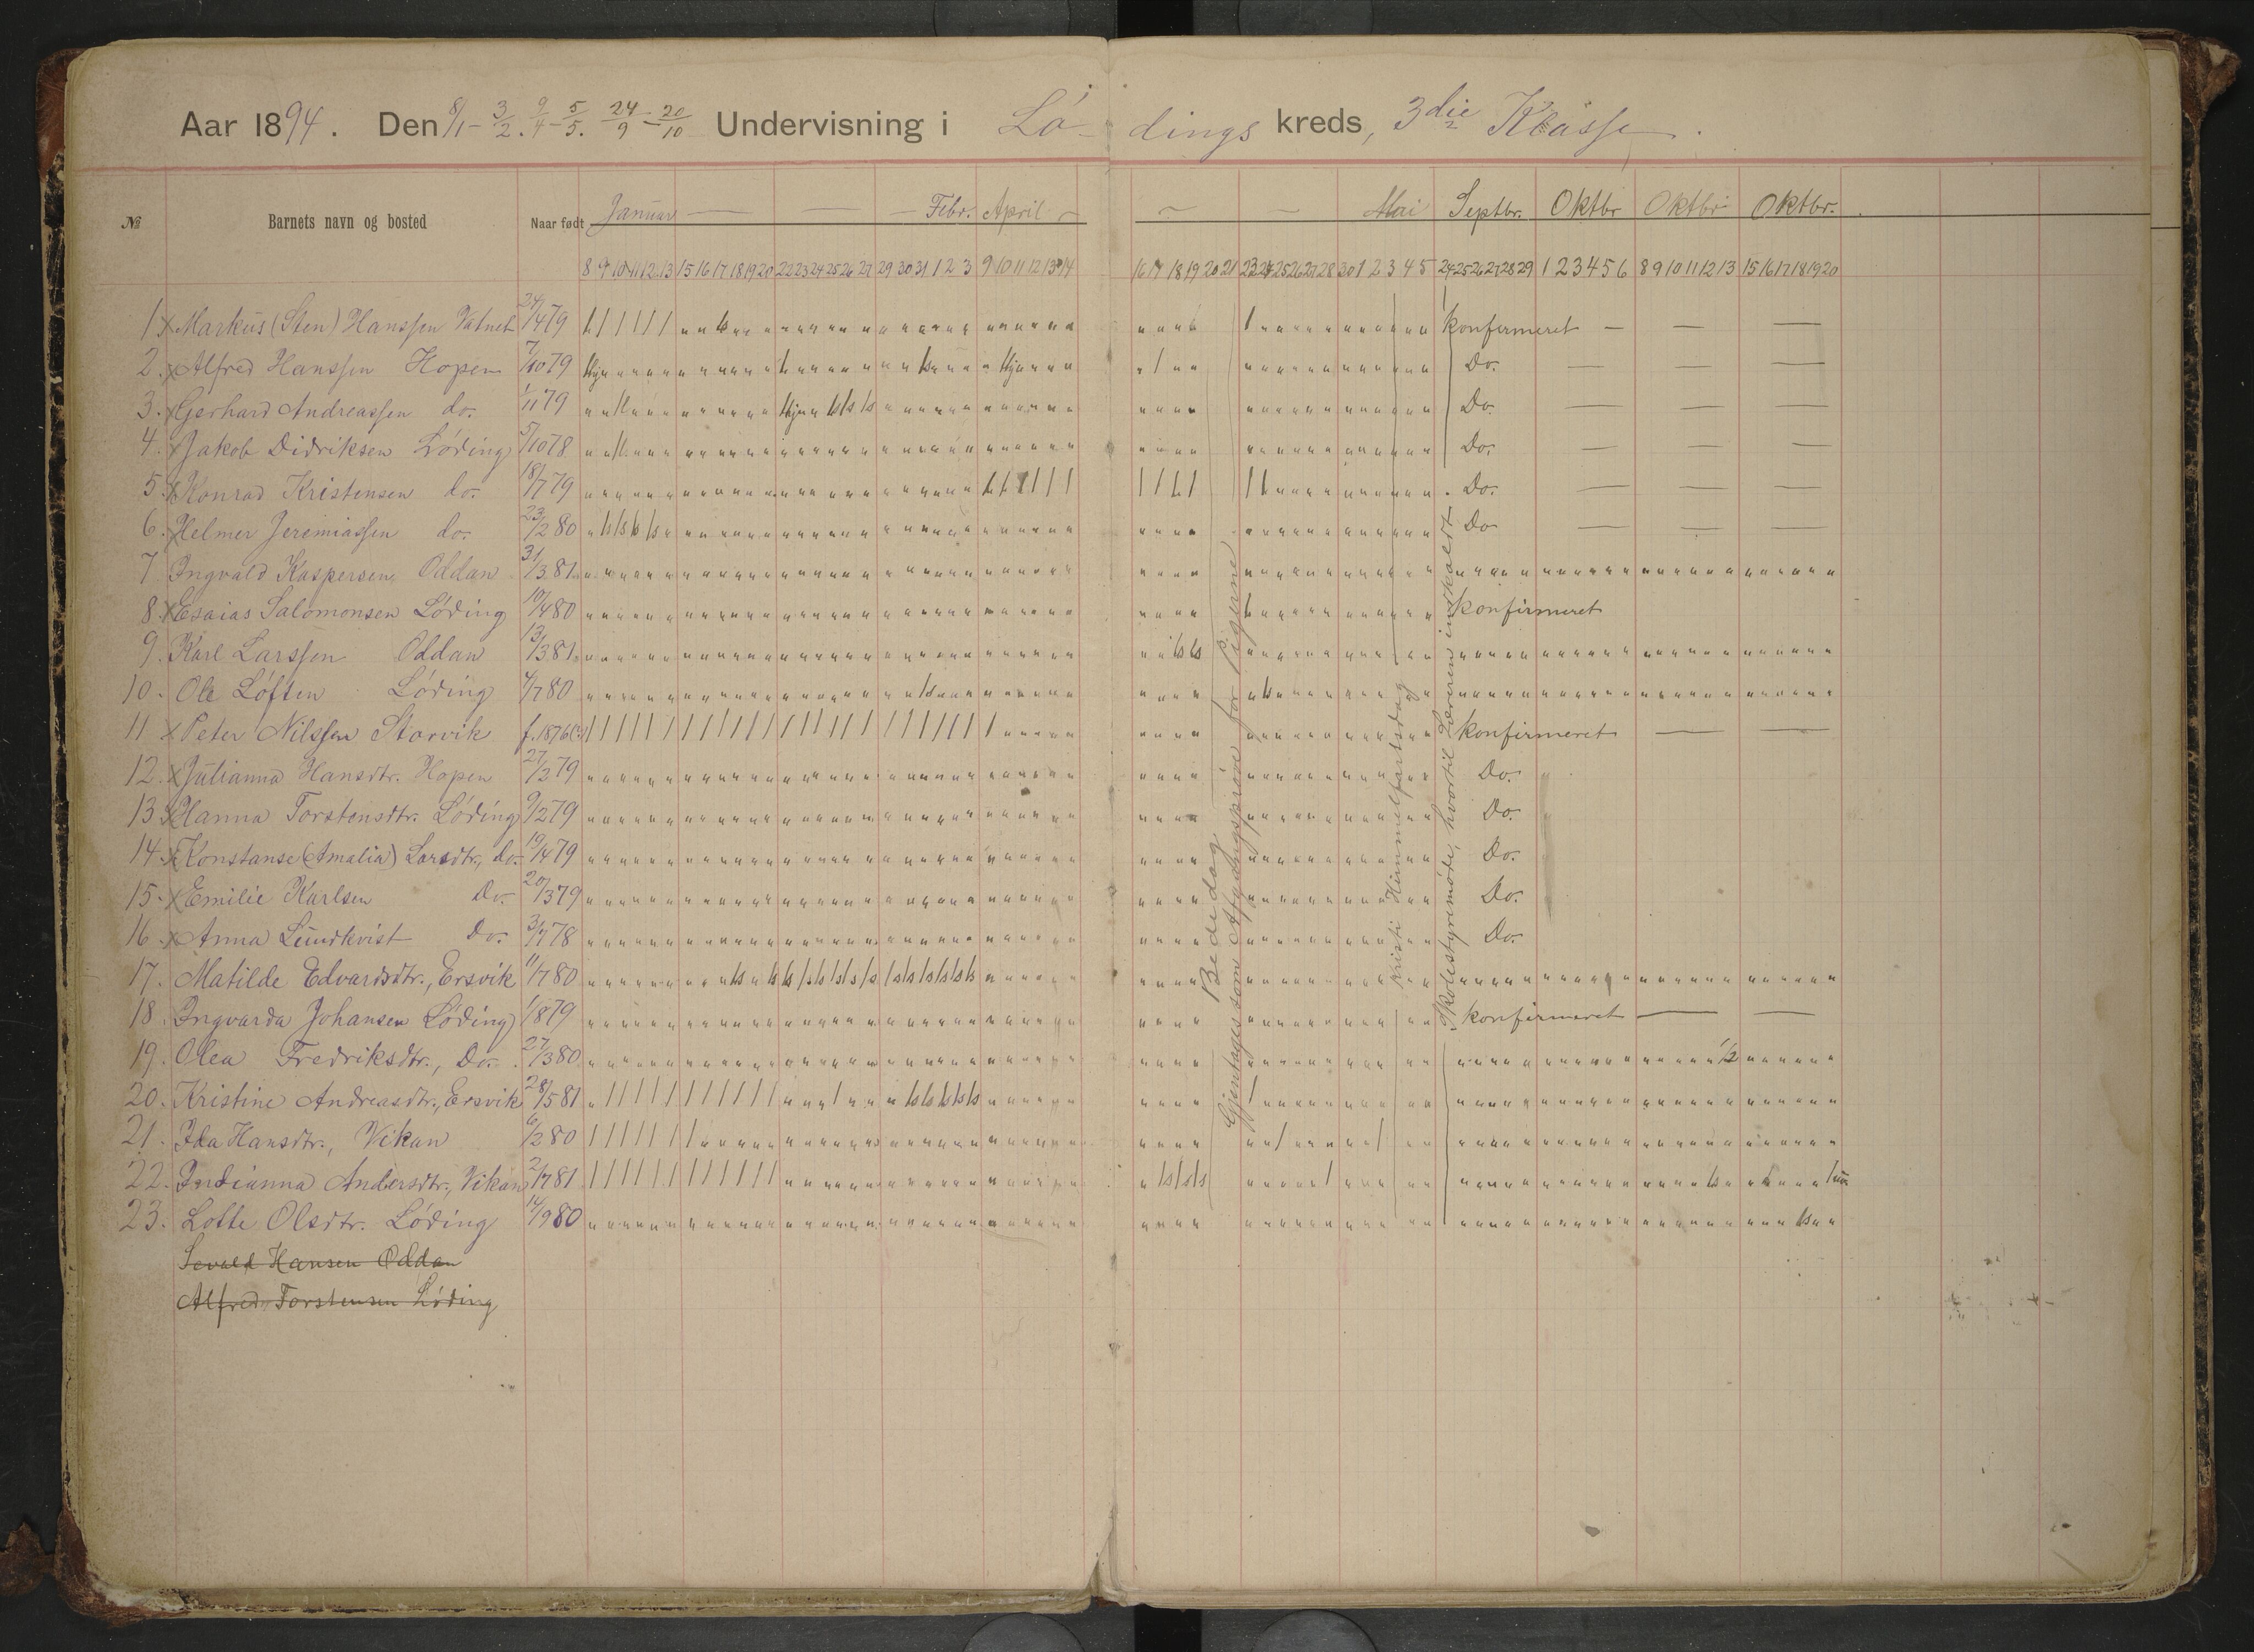 Aar 1894. Den 8/1 - 3/2. 9/4 - 5/5. 24/9 - 20/10 Undervisning i Lö- dings kreds, 3die Klasse.
№ Barnets navn og bosted Naar født Januar — — — Febr. April — — — Mai Septbr. Oktbr Oktbr Oktbr.
8 9 10 11 12 13 15 16 17 18 19 20 22 23 24 25 26 27 29 30 31 1 2 3 9 10 11 12 13 14 16 17 18 19 20 21 23 24 25 26 27 28 30 1 2 3 4 5 24 25 26 27 28 29 1 2 3 4 5 6 8 9 10 11 12 13 15 16 17 18 19 20
1 x Markus (Sten) Hanssen Vatnet 24/4 79 konfirmeret — — —
2. x Alfred Hanssen Hopen 7/10 79 Do. — — —
3. x Gerhard Andreassen do. 1/11 79 Do. — — —
4. x Jakob Didriksen Löding 5/10 78 Do. — — —
5. x Konrad Kristensen do. 18/7 79 Do. — — —
6. x Helmer Jeremiassen do. 23/2 80 Do — — —
7. Ingvald Kaspersen, Oddan 31/3 81
8. x Esaias Salomonsen Löding 10/4 80 konfirmeret
9. Karl Larssen Oddan 13/3 81
10. Ole Löften Löding 4/7 80
11 x Peter Nilssen Storvik f. 1876 konfirmeret — —
12. x Julianna Hansdtr. Hopen 27/2 79 Do.
13. x Hanna Torstensdtr. Löding 9/2 79 Do.
14. x Konstanse (Amalia) Larsdtr., do. 19/4 79 Do.
15. x Emilie Karlsen Do. 20/3 79 Do.
16. x Anna Lundkvist Do. 3/7 78 Do.
17. Matilde Edvardsdtr., Ersvik 11/7 80
18. Ingvarda Johansen Löding 1/8 79 konfirmeret — —
19. Olea Fredriksdtr., Do. 27/3 80
20. Kristine Andreasdtr., Ersvik 28/5 81
21. Ida Hansdtr., Vikan 6/2 80
22. Indianna Andersdtr., Vikan 2/7 81
23. Lotte Olsdtr. Löding 14/9 80
Sevald Hansen Oddan
Alfred Torstensen Löding
Bededag
Gjentages som Afgangspröve for Pigerne
Kristi Himmelfartsdag
Skolestyremöde, hvortil Læreren indkaldt